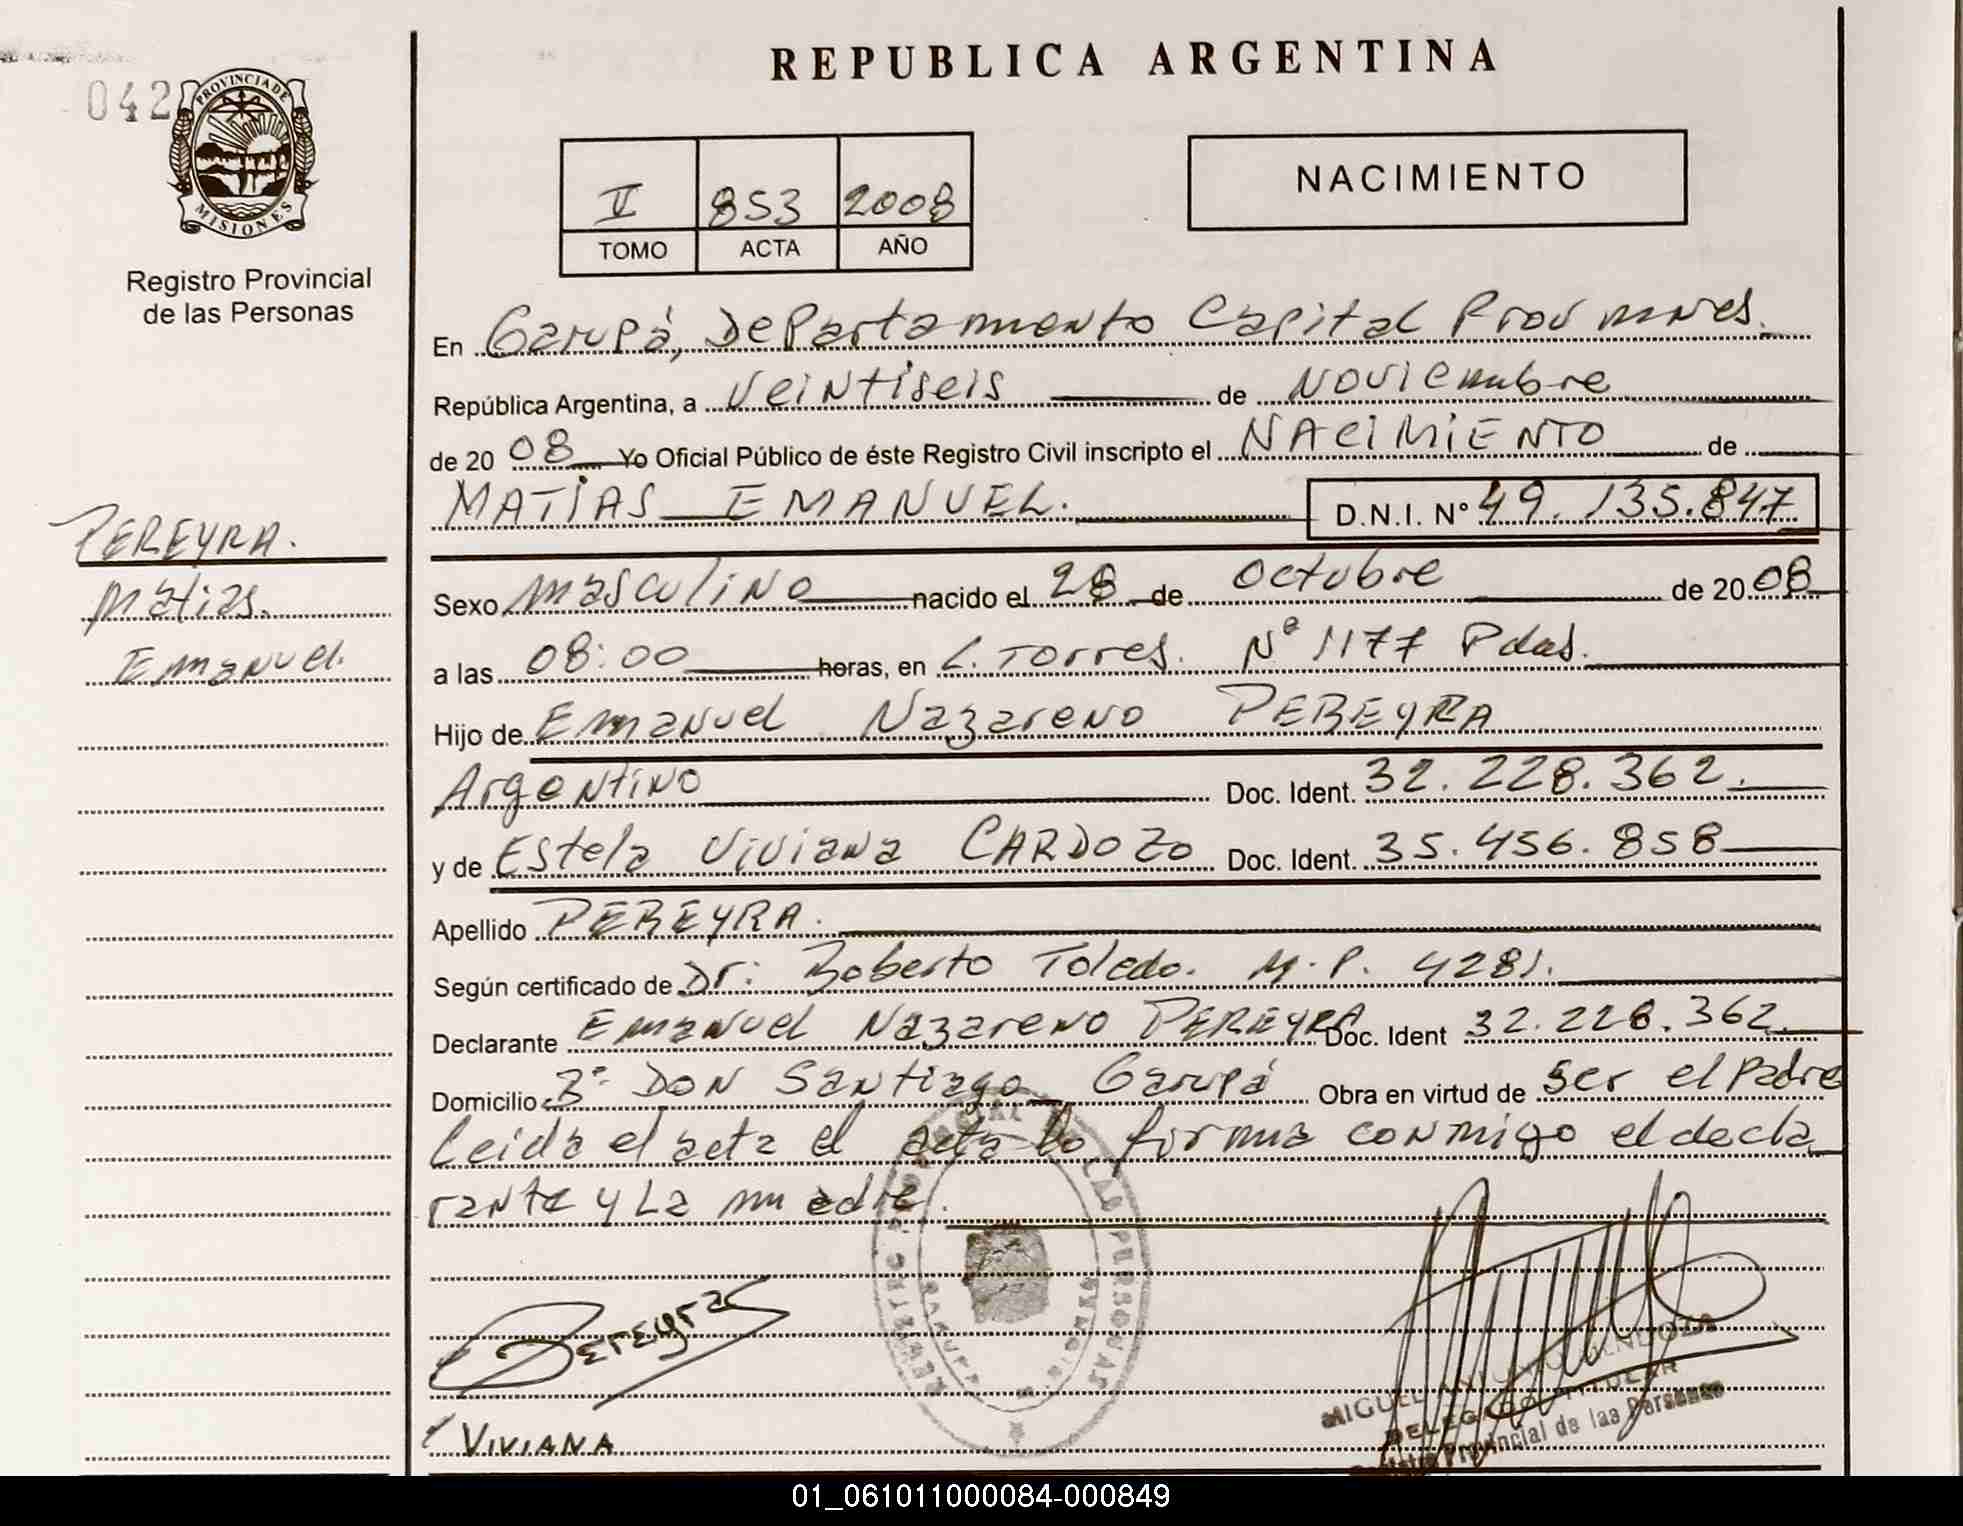 REPUBLICA ARGENTINA
042
PROVINCIA DE
MISIONES
Registro Provincial
de las Personas
V 853 2008
TOMO ACTA AÑO
NACIMIENTO
En Garupá, Departamento Capital Prov
República Argentina, a Veintiseis de Noviembre
de 20 08 Yo Oficial Público de éste Registro Civil inscripto el NACIMIENTO de
MATIAS EMANUEL. D.N.I. Nº 49.135.847
PEREYRA.
Matias.
Emanuel.
Sexo masculino nacido el 28 de Octubre de 20 08
a las 08:00 horas, en L. Torres. Nº 1177 Pdas.
Hijo de Emanuel Nazareno PEREYRA
Argentino Doc. Ident. 32.228.362.
y de Estela Viviana CARDOZO Doc. Ident. 35.456.858
Apellido PEREYRA.
Según certificado de Dr: Roberto Toledo. M.P. 4281.
Declarante Emanuel Nazareno PEREYRA Doc. Ident 32.228.362.
Domicilio Bº DON Santiago Garupá Obra en virtud de ser el Padre
Leida el acta el acta lo firma conmigo el decla
rante y La madre.
Pereyra
VIVIANA
MIGUEL ANTONIO MENDOZA
DELEGADO TITULAR
Registro Provincial de las Personas
01_061011000084-000849